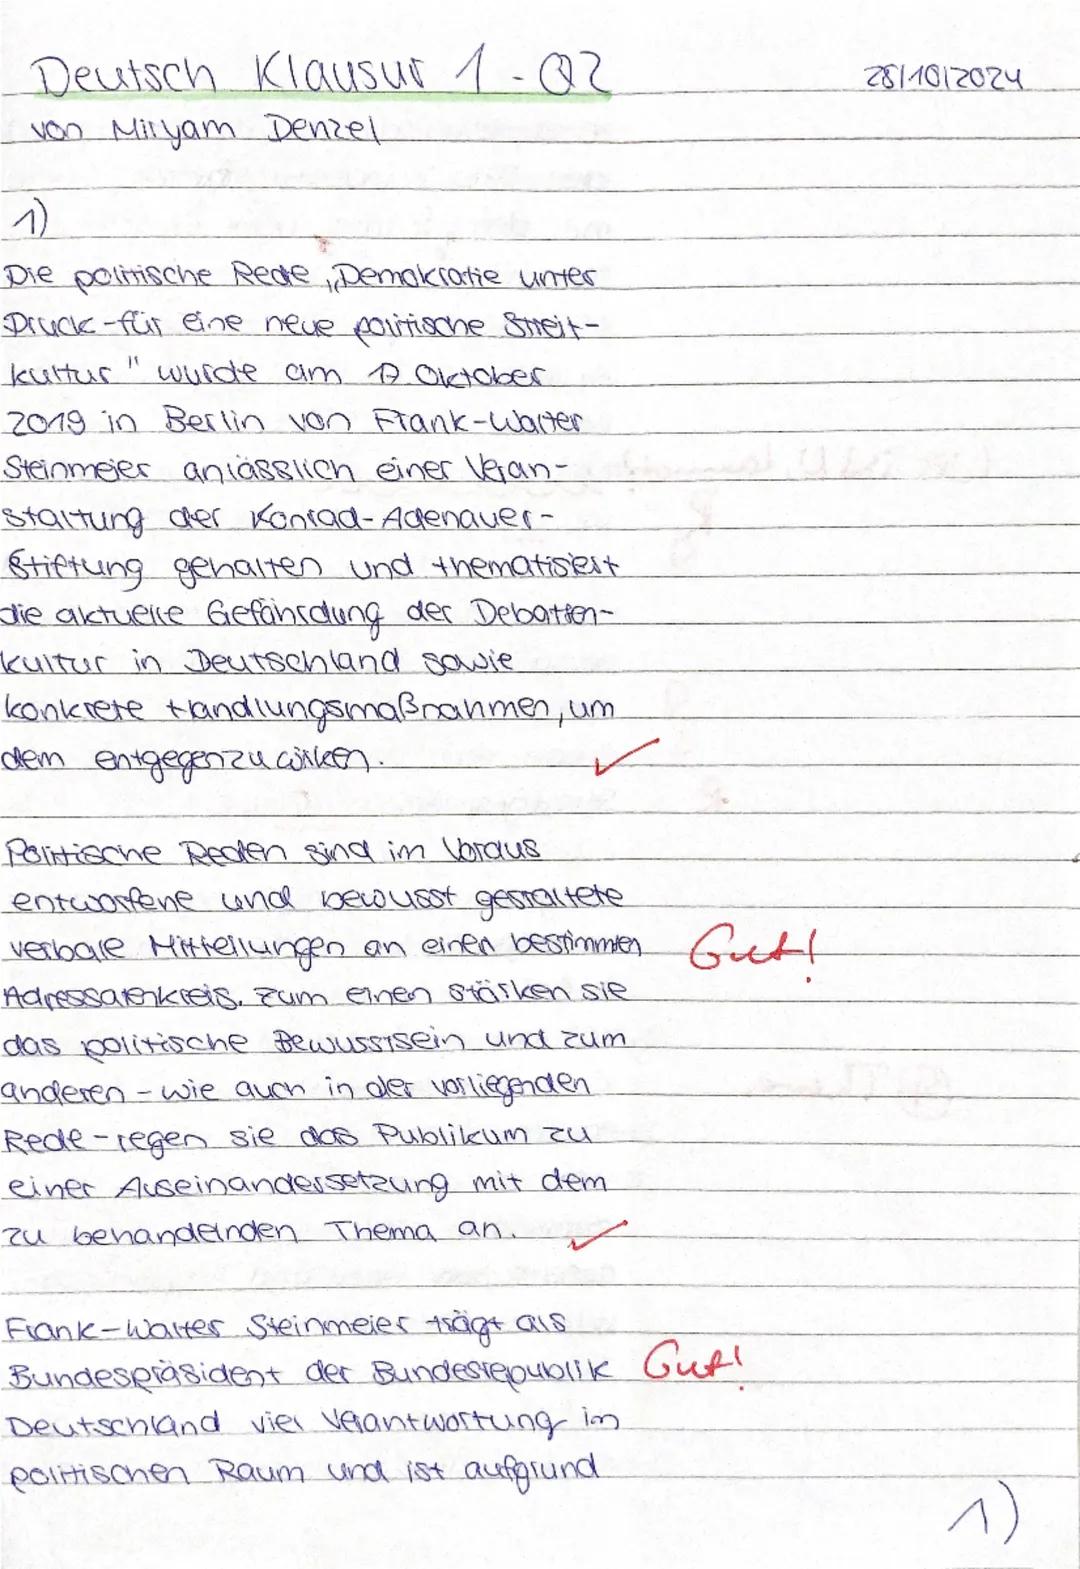 Deutsch Klausur 1 - Q2
28/10/2024
von Miryam Denzel
1)
Die politische Rede „Demokratie unter
Druck - für eine neue politische Streit-
kultur" wurde am 17 Oktober
2019 in Berlin von Frank-Walter
Steinmeier anlässlich einer Veran-
staltung der Konrad-Adenauer-
Stiftung gehalten und thematisiert
die aktuelle Gefährdung der Debatten-
kultur in Deutschland sowie
konkrete Handlungsmaßnahmen, um
dem entgegenzuwirken.
Politische Reden sind im Voraus
entworfene und bewusst gestaltete
verbale Mitteilungen an einen bestimmten
Gut!
Adressatenkreis. Zum einen stärken sie
das politische Bewusstsein und zum
anderen - wie auch in der vorliegenden
Rede - regen sie das Publikum zu
einer Auseinandersetzung mit dem
zu behandelnden Thema an.
Frank-Walter Steinmeier trägt als
Bundespräsident der Bundesrepublik
Gut!
Deutschland viel Verantwortung im
politischen Raum und ist aufgrund
1)